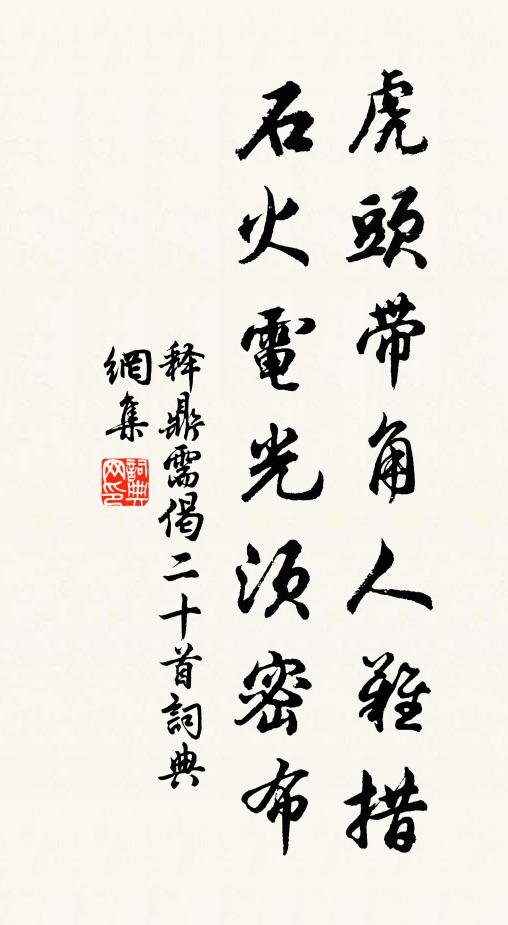 虎頭帶角人難措
石火電光須密布
释鼎需偈二十首詞典
網集
詞典
网印